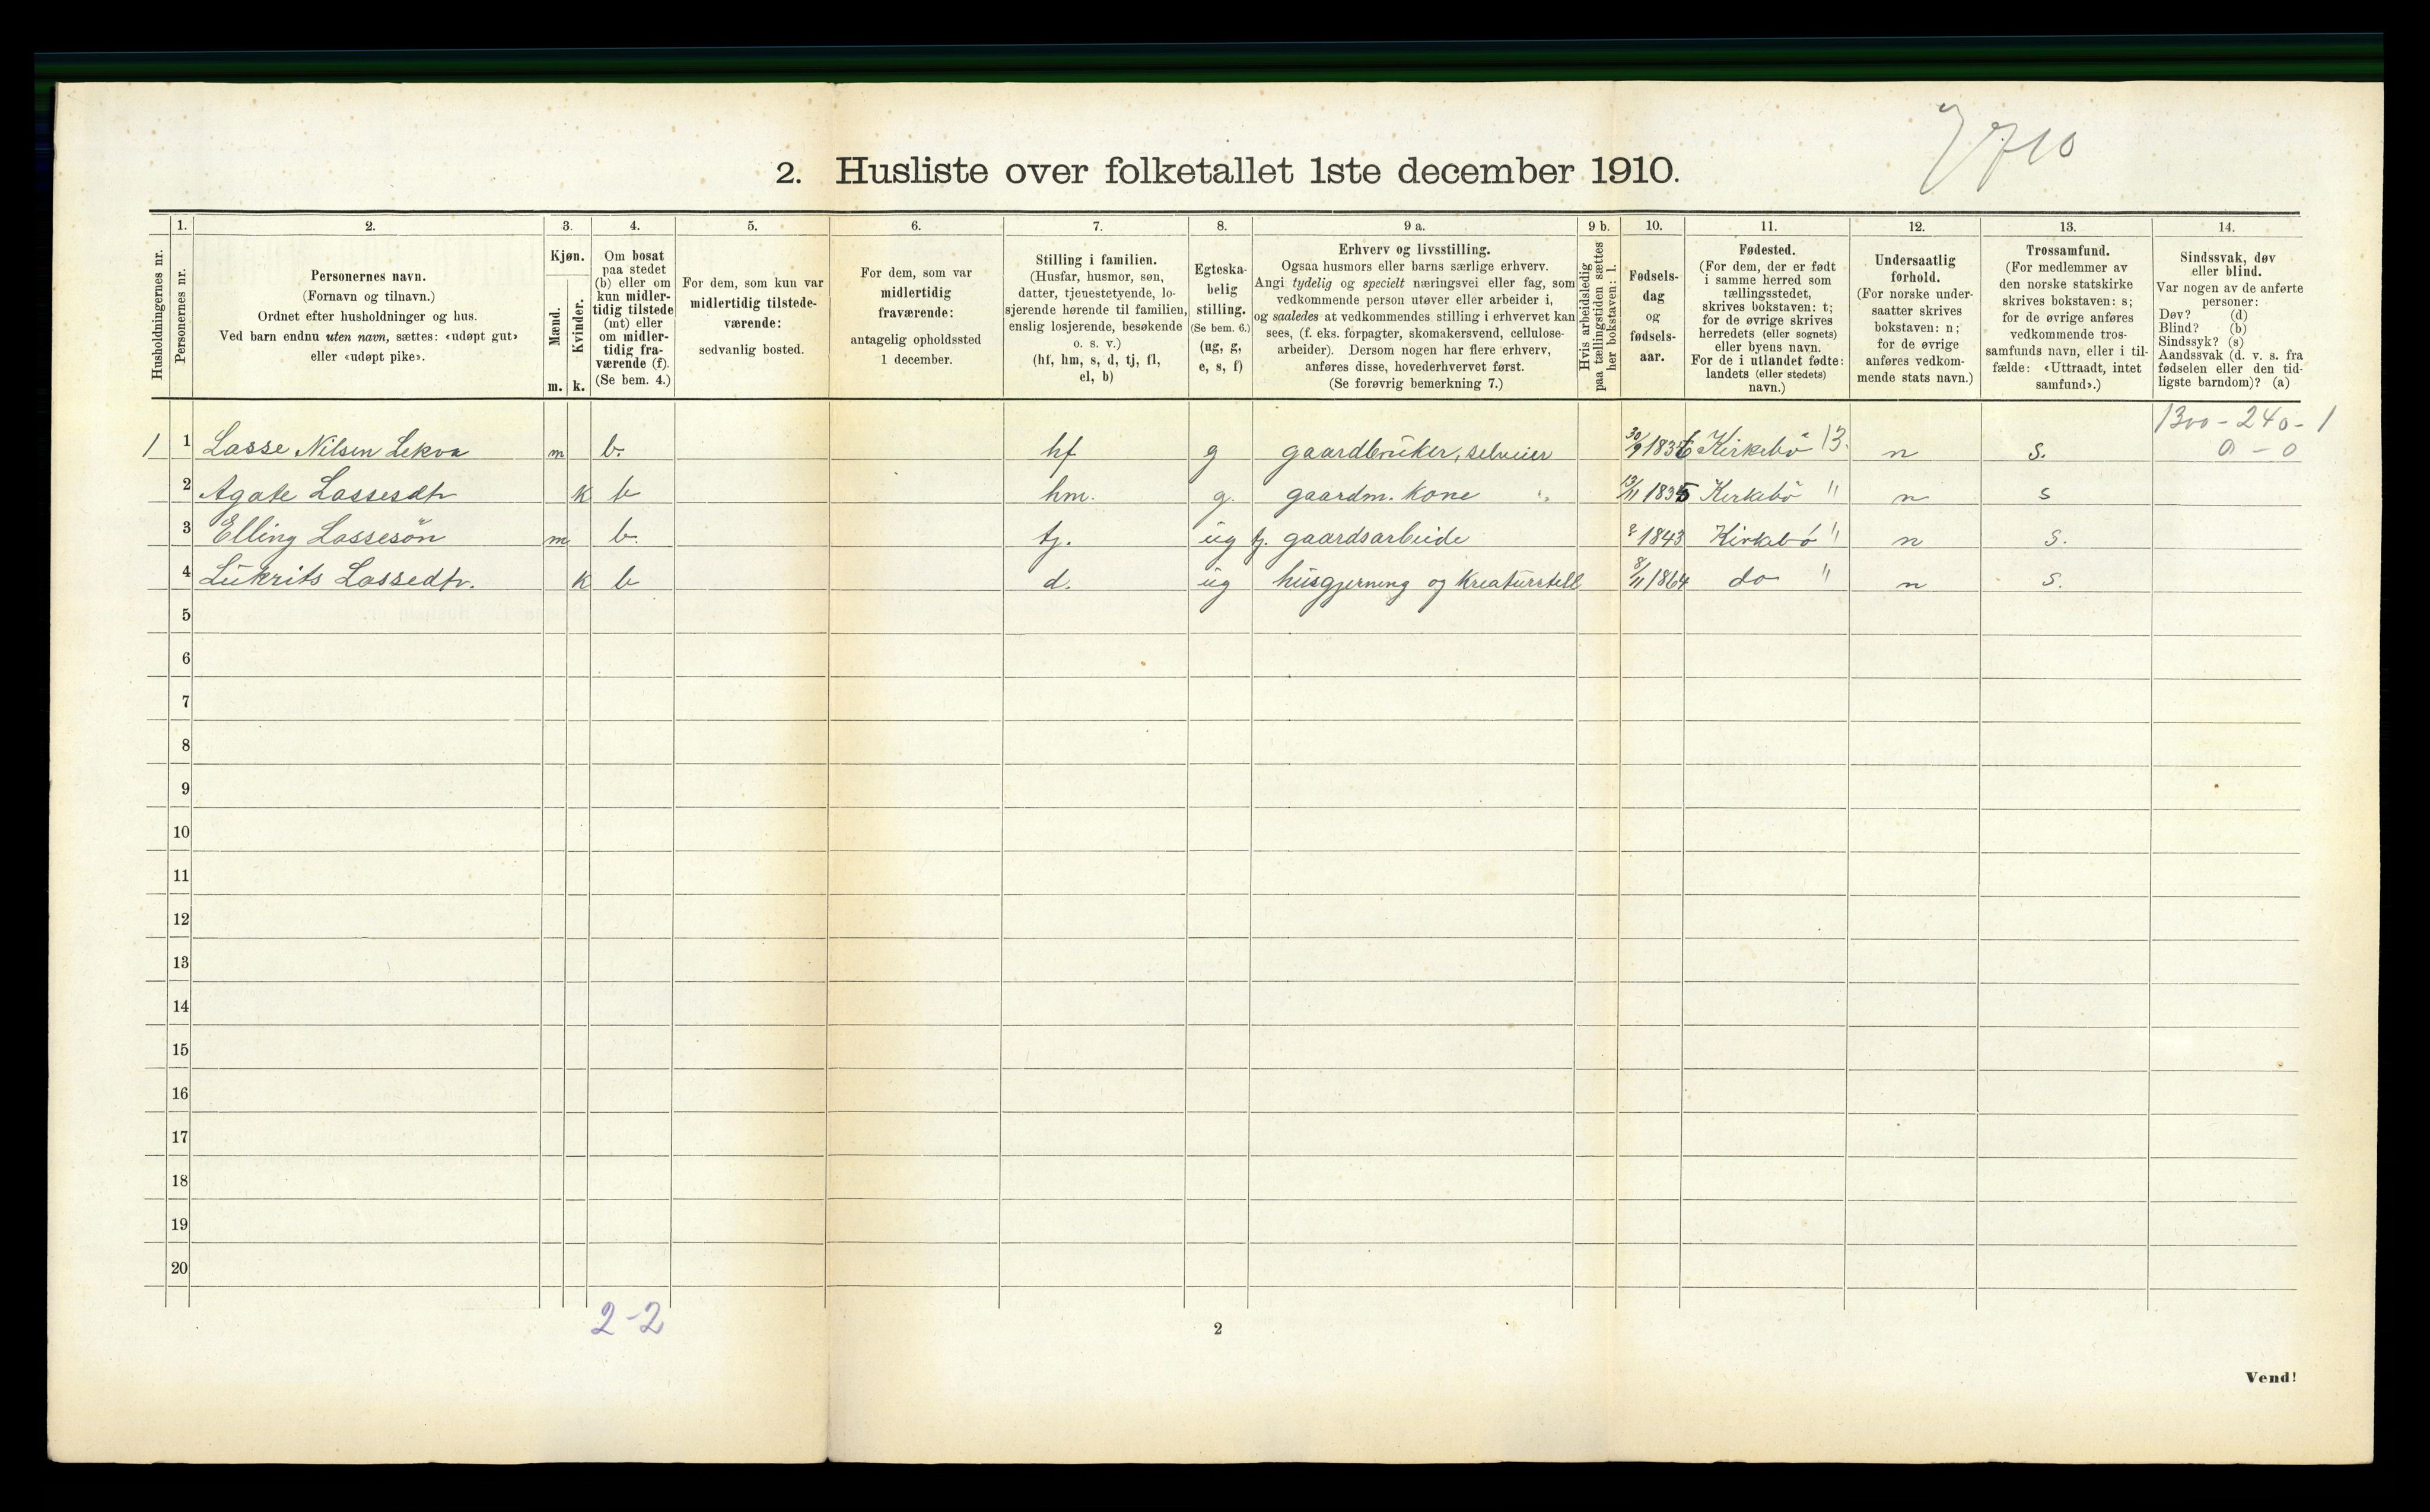 2. Husliste over folketallet 1ste december 1910.
Husholdningernes nr.
1.
Personernes nr.
2.
Personernes navn.
(Fornavn og tilnavn.)
Ordnet efter husholdninger og hus.
Ved barn endnu uten navn, sættes: «udøpt gut»
eller «udøpt pike».
3.
Kjøn.
Mænd.
Kvinder.
m. k.
4.
Om bosat
paa stedet
(b) eller om
kun midler-
tidig tilstede
(mt) eller
om midler-
tidig fra-
værende (f).
(Se bem. 4.)
5.
For dem, som kun var
midlertidig tilstede-
værende:
sedvanlig bosted.
6.
For dem, som var
midlertidig
fraværende:
antagelig opholdssted
1 december.
7.
Stilling i familien.
(Husfar, husmor, søn,
datter, tjenestetyende, lo-
sjerende hørende til familien,
enslig losjerende, besøkende
o. s. v.)
(hf, hm, s, d, tj, fl,
el, b)
8.
Egteska-
belig
stilling.
(Se bem. 6.)
(ug, g,
e, s, f)
9 a.
Erhverv og livsstilling.
Ogsaa husmors eller barns særlige erhverv.
Angi tydelig og specielt næringsvei eller fag, som
vedkommende person utøver eller arbeider i,
og saaledes at vedkommendes stilling i erhvervet kan
sees, (f. eks. forpagter, skomakersvend, cellulose-
arbeider). Dersom nogen har flere erhverv,
anføres disse, hovederhvervet først.
(Se forøvrig bemerkning 7.)
9 b.
Hvis arbeidsledig
paa tællingstiden sættes
her bokstaven: l.
10.
Fødsels-
dag
og
fødsels-
aar.
11.
Fødested.
(For dem, der er født
i samme herred som
tællingsstedet,
skrives bokstaven: t;
for de øvrige skrives
herredets (eller sognets)
eller byens navn.
For de i utlandet fødte:
landets (eller stedets)
navn.)
12.
Undersaatlig
forhold.
(For norske under-
saatter skrives
bokstaven: n;
for de øvrige
anføres vedkom-
mende stats navn.)
13.
Trossamfund.
(For medlemmer av
den norske statskirke
skrives bokstaven: s;
for de øvrige anføres
vedkommende tros-
samfunds navn, eller i til-
fælde: «Uttraadt, intet
samfund».)
14.
Sindssvak, døv
eller blind.
Var nogen av de anførte
personer:
Døv? (d)
Blind? (b)
Sindssyk? (s)
Aandssvak (d. v. s. fra
fødselen eller den tid-
ligste barndom)? (a)
1300 - 240 - 1
0 - 0
1 1 Lasse Nilsen Lekva m b. hf g gaardbruker, selveier 30/9 1836 Kirkebö 13. n s.
2 Agate Lassesdtr k b hm. g. gaardm. kone " 13/11 1835 Kirkebö " n s
3 Elling Lassesön m b. tj. ug tj. gaardsarbeide ? 1843 Kirkebö " n s.
4 Lukrits Lassedtr. k b d. ug husgjerning og kreaturstell 8/11 1864 do " n s.
5
6
7
8
9
10
11
12
13
14
15
16
17
18
19
20
2-2
2
Vend!